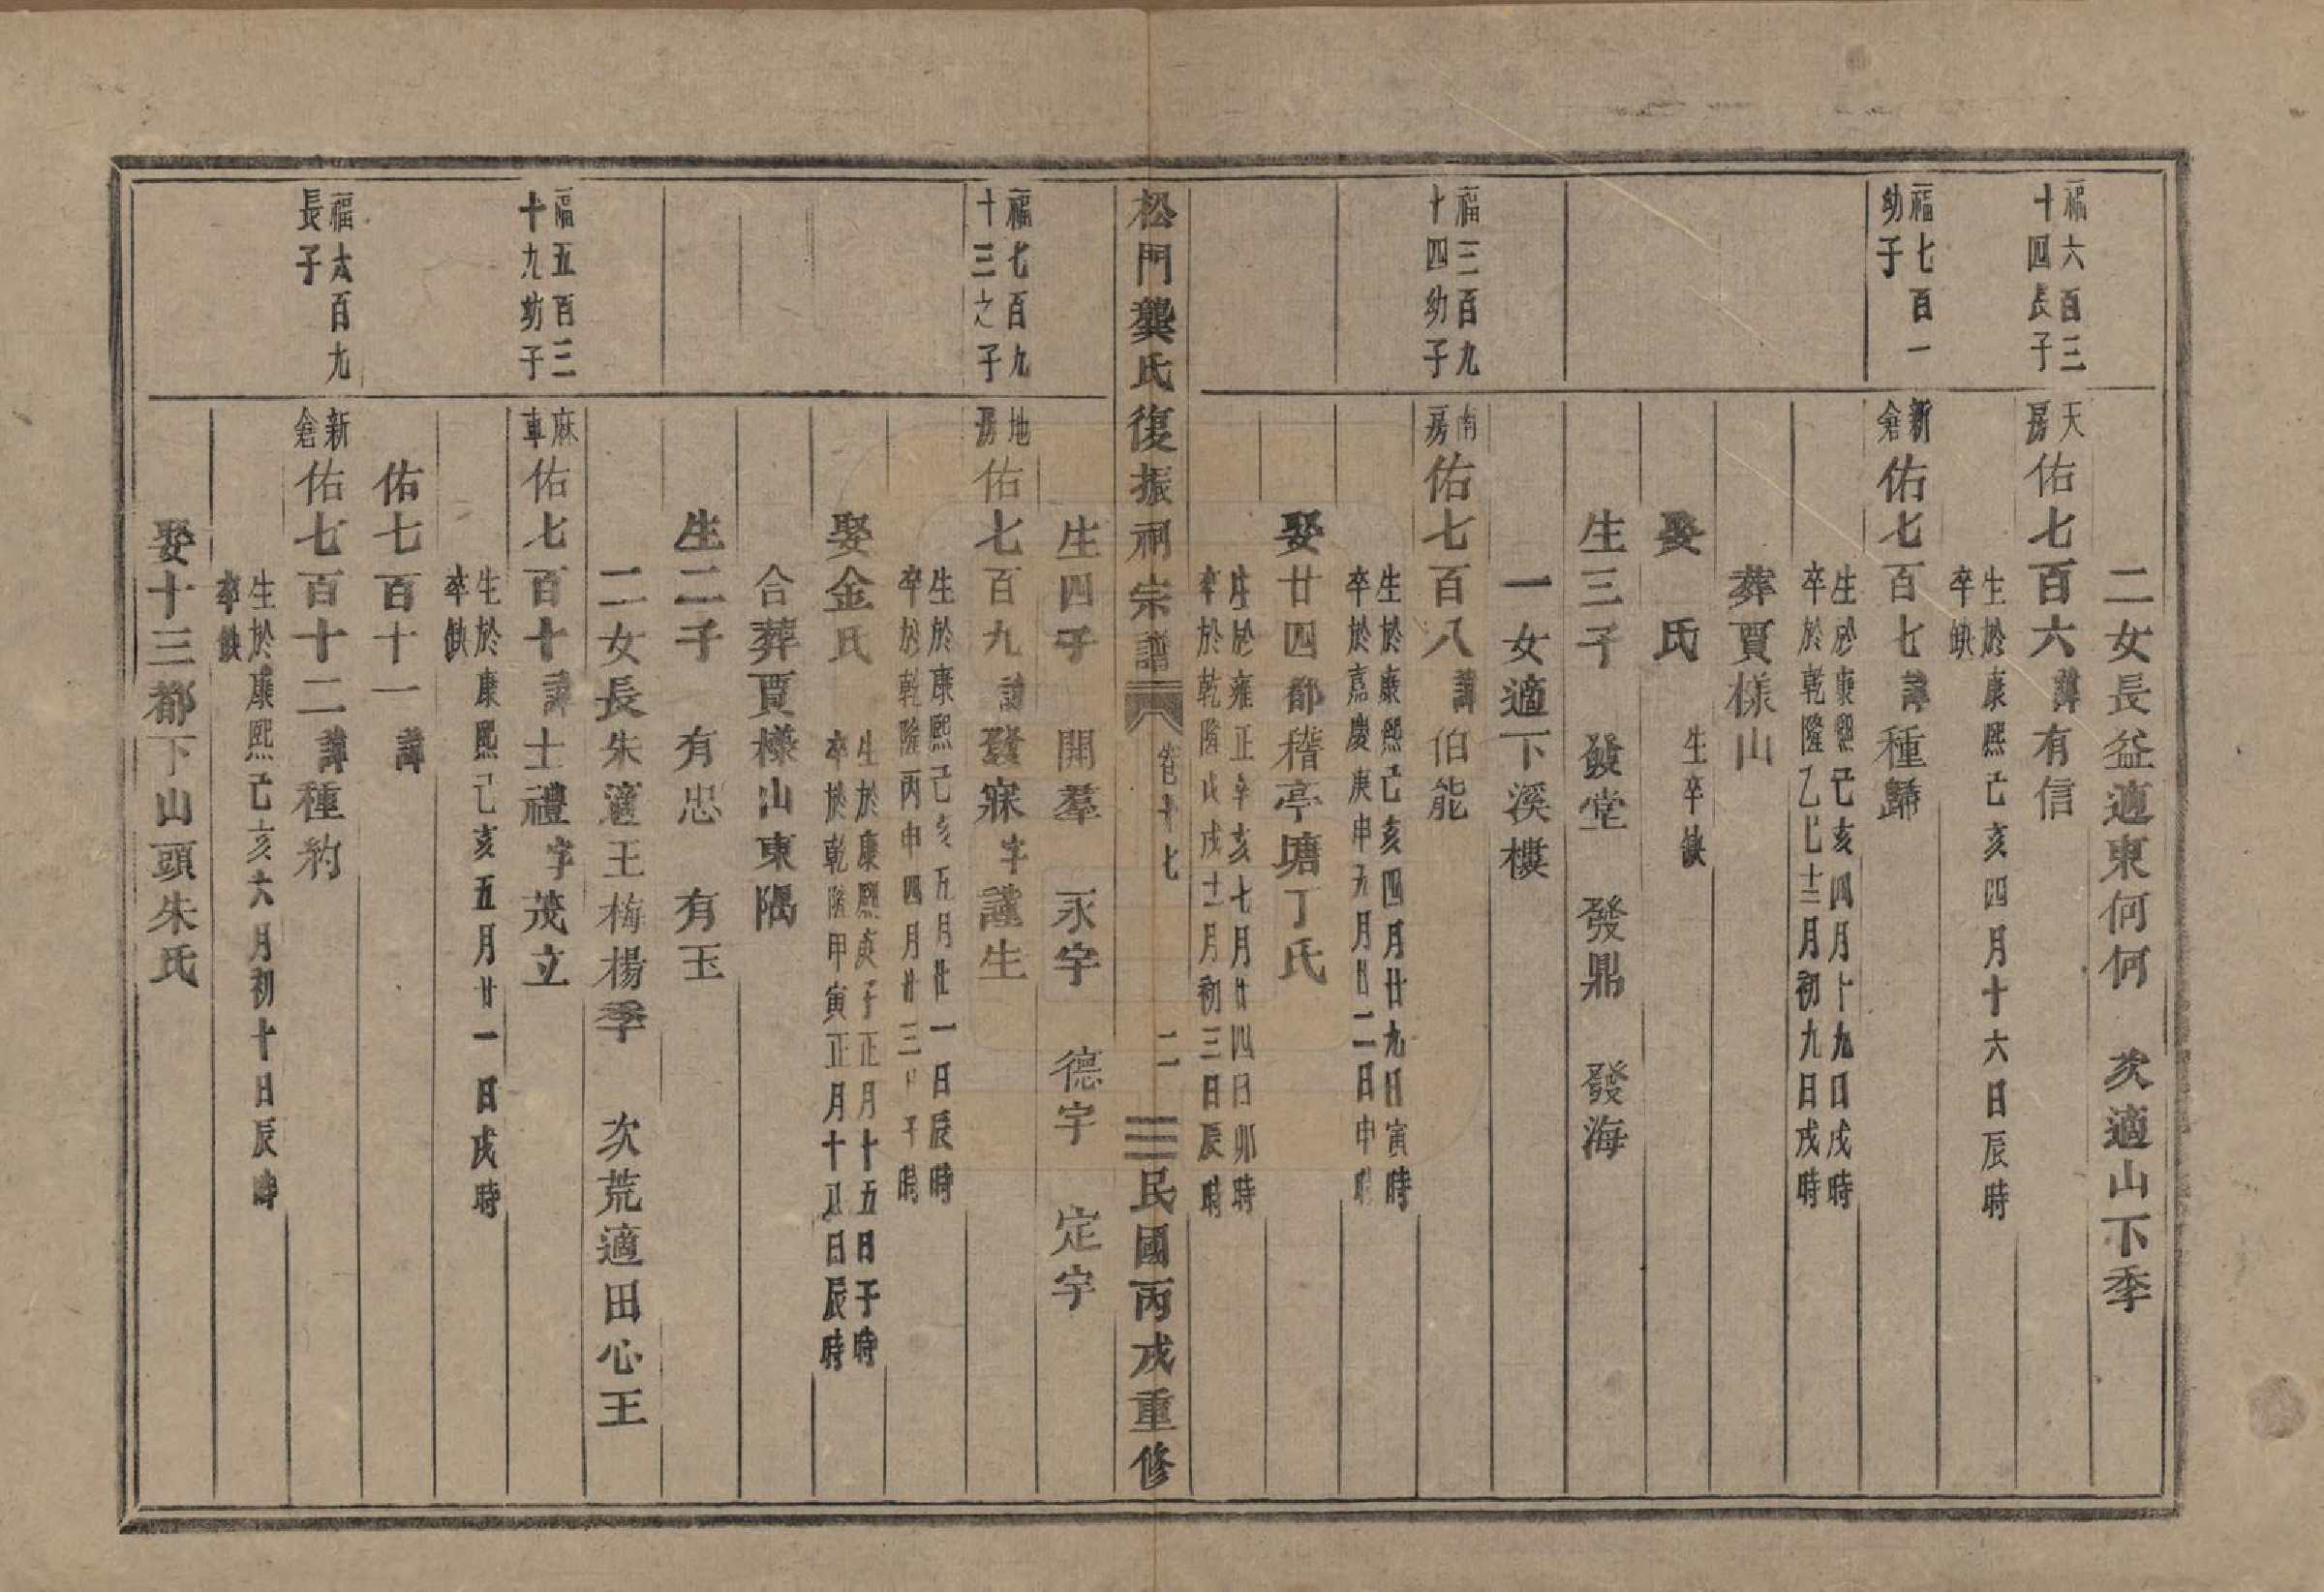 二女長益適東何何　次適山下季
福六百三
十四長子
天房佑七百六諱有信
生於康熙己亥四月十六日辰時
卒缺
福七百一
幼子
新倉佑七百七諱種歸
生於康熙己亥四月十九日戌時
卒於乾隆乙巳十二月初九日戌時
葬賈樣山
娶　氏　生卒缺
生三子　發堂　發鼎　發海
一女適下溪樓
福三百九
十四幼子
南房佑七百八諱伯能
生於康熙己亥四月廿九日寅時
卒於嘉慶庚申九月廿二日申時
娶廿四都稽亭塘丁氏
生於雍正辛亥七月廿四日卯時
卒於乾隆戊戌十二月初三日辰時
松門龔氏復振祠宗譜　卷七十七　二　民國丙戌重修
生四子　開羣　永宇　德宇　定宇
福七百九
十三之子
地房佑七百九諱發寐字謹生
生於康熙己亥五月廿一日辰時
卒於乾隆丙申四月廿三日午時
娶金氏
生於康熙庚子正月十五日子時
卒於乾隆甲寅正月十八日辰時
合葬賈樣山東隅
生二子　有忠　有玉
二女長朱適王梅楊季　次荒適田心王
福五百三
十九幼子
麻車佑七百十諱士禮字茂立
生於康熙己亥五月廿一日戌時
卒缺
佑七百十一諱
福六百九
長子
新倉佑七百十二諱種約
生於康熙己亥六月初十日辰時
卒缺
娶十三都下山頭朱氏